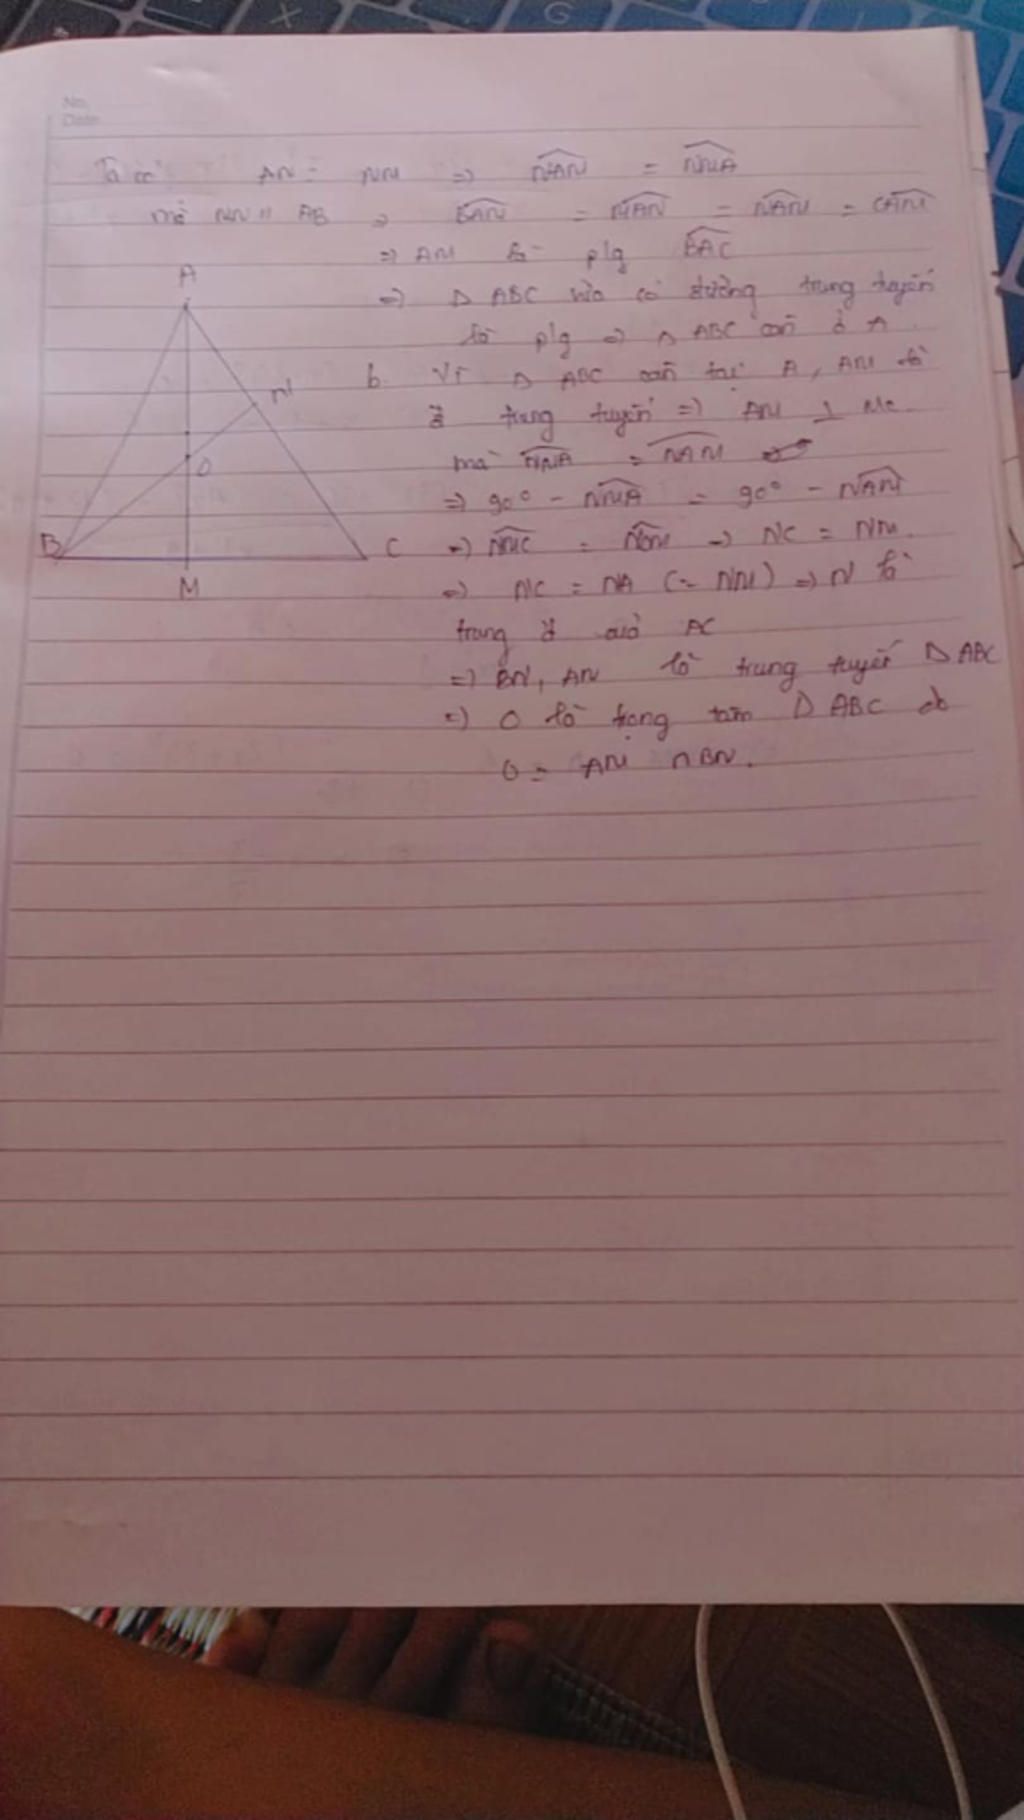 G
X
No.
Date
Ta có: AN = NM => NAM = NMA
mà MN // AB => BAM = NAM = CAM
=> AM là p/g BAC
=> Δ ABC có đường trung tuyến
là p/g => Δ ABC cân ở A.
A
N
O
B
C
M
b. Vì Δ ABC cân tại A, AM là
trung tuyến => AM ⊥ MC
mà NMA = NAM
=> 90° - NMA = 90° - NAM
=> NMC = NCM => NC = NM.
=> NC = NA (= NM) => N là
trung đ của AC
=> BN, AM là trung tuyến Δ ABC
=> O là trọng tâm Δ ABC do
O = AM ∩ BN.